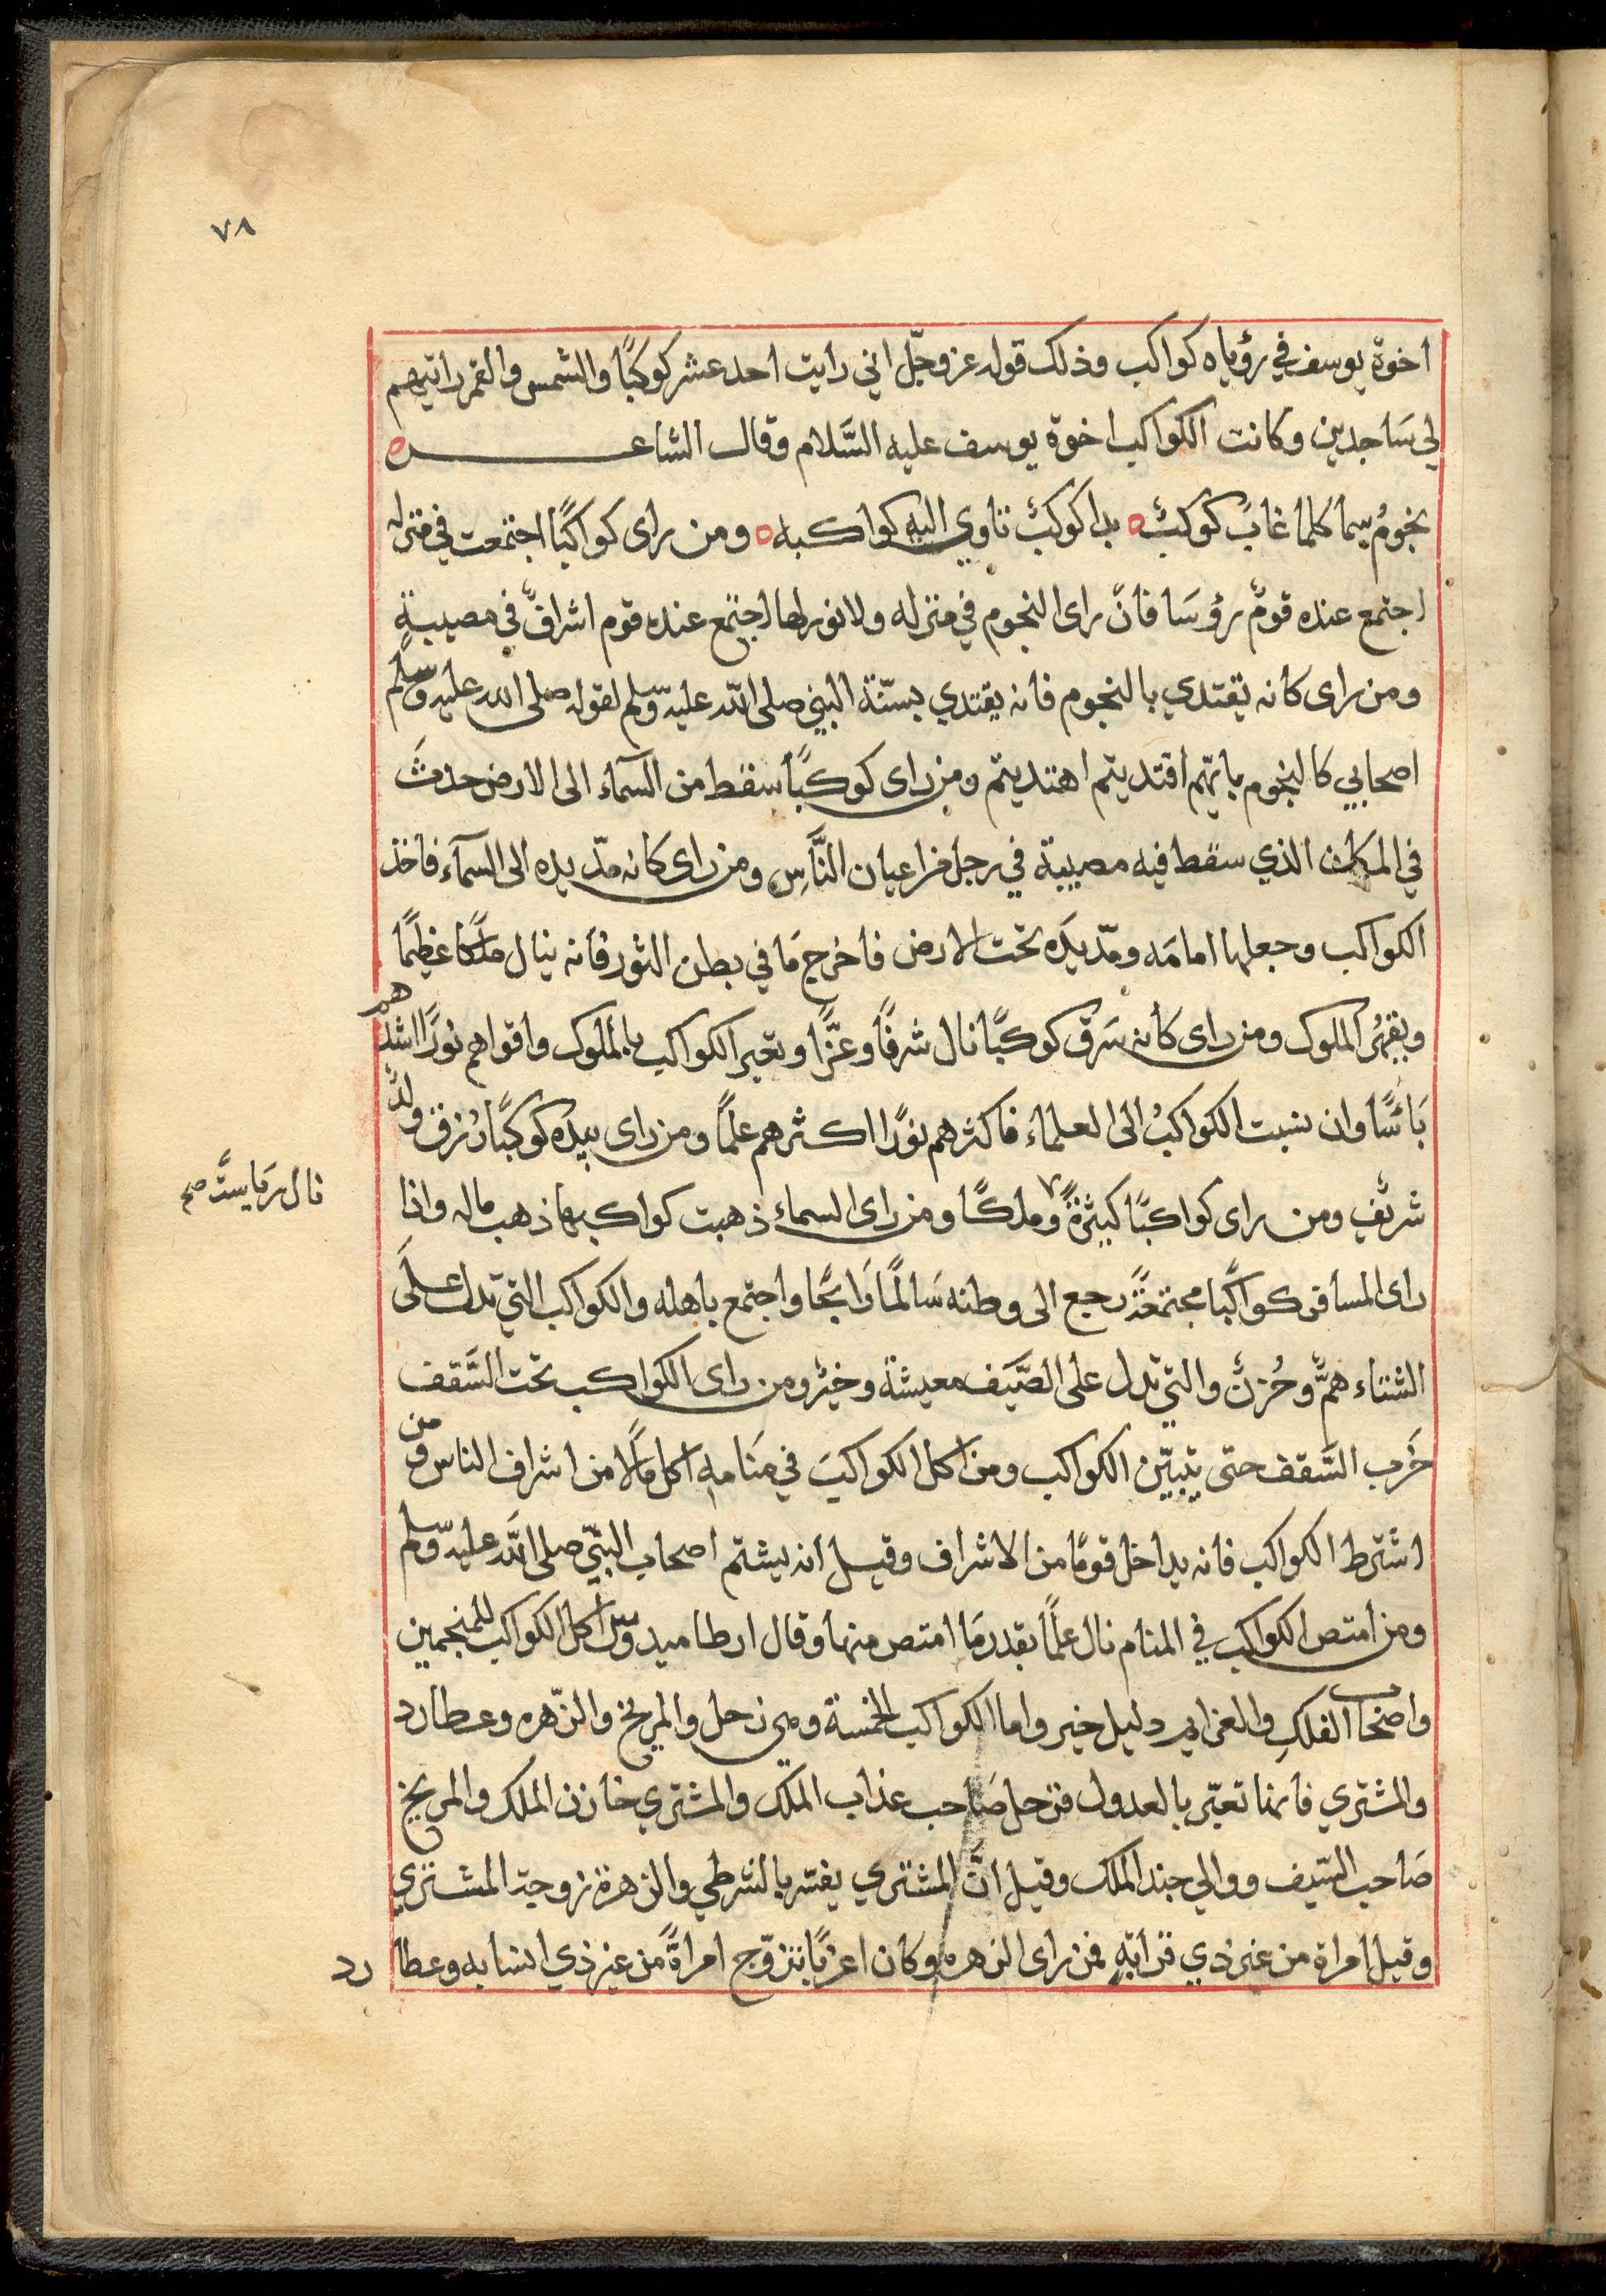 ٧٨
اخوة يوسف في رؤياه كواكب وذلك قوله عز وجلّ اني رايت احد عشر كوكبًا والشمس والقمر رايتهم
لي سَاجدين وكانت الكواكب اخوة يوسف عليه السَّلام وقال الشاعـــــر ه
نجومُ سما كلما غابَ كوكبٌ ه بدا كوكبٌ تاوي اليهِ كواكبه ه ومن راى كواكبًا اجتمعت في منزله
اجتمع عنده قومٌ رؤسَا فانّ راى النجوم في منزله ولا نور لها اجتمع عنده قوم اشرافٌ في مصيبةٍ
ومن راى كانه يقتدي بالنجوم فانه يقتدي بسنّة النبي صلى الله عليه وسلم لقوله صلى الله عليه وسلم
اصحابي كالنجوم بايّهم اقتديتم اهتديتم ومن راى كوكبًا سقط من السمآء الى الارض حدثَ
في المكان الذي سقط فيه مصيبة في رجل من اعيان النَّاسِ ومن راى كانه مدّ يده الى السمآء فاخذ
الكواكب وجعلها امامَه ومدّ يَده تحت الارض فاخرج مَا في بطن الثور فانه ينال ملكًا عظيمًا
ويقهرُ الملوك ومن راى كانه سَرق كوكبًا نال شرفًا وعزًّا وتعبر الكواكب بالملوك واقواهم نورًا اشدهم
بَاسًا وان نسبت الكواكبُ الى العلماء فاكثرهم نورًا اكثرهم علمًا ومن راى بيده كوكبًا رُزق ولدٌ
شريف ومن راى كواكبًا كثيرةً ٧ وملكًا ومن راى السماء ذهبت كواكبها ذهب ماله واذا
نال رَياسةً صح
راى المسافر كواكبًا مجتمعةً رجع الى وطنه سَالمًا رَابحًا واجتمع باهله والكواكب التي تدل علَى
الشتاء همٌّ وحُزنٌ والتي تدل على الصَّيَف معيشة وخيرٌ ومن راى الكواكب تحت السَّقف
خَرب السَّقف حتى يتبيّن الكواكب ومن اكل الكواكبَ في مَنامهِ اكل مَالًا من اشراف الناس ومن
اشترط الكواكب فانه يداخل قومًا من الاشراف وقيل انه يشتم اصحاب النبّي صلى الله عليه وسلم
ومن امتص الكواكب في المنام نال علمًا بقدر مَا امتص منها وقال ارطاميدوس اكل الكواكب للمنجمين
واصحاب الفلكِ والعزايم دليل خير واما الكواكب الخمسة وهي زحل والمريخ والزّهره وعطارد
والمشتري فانها تعبّر بالعدول فزحل صَاحب عذاب الملك والمشتري خازن الملك والمريخ
صَاحب السّيف ووالي جند الملك وقيل انّ المشتري يفسّر بالشرطي والزهرة زوجة المشتري
وقيل امراة من غير ذي قرابةٍ فمن راى الزهره وكان اعزبًا تزوّج امراةً من غير ذي انسابه وعطارد